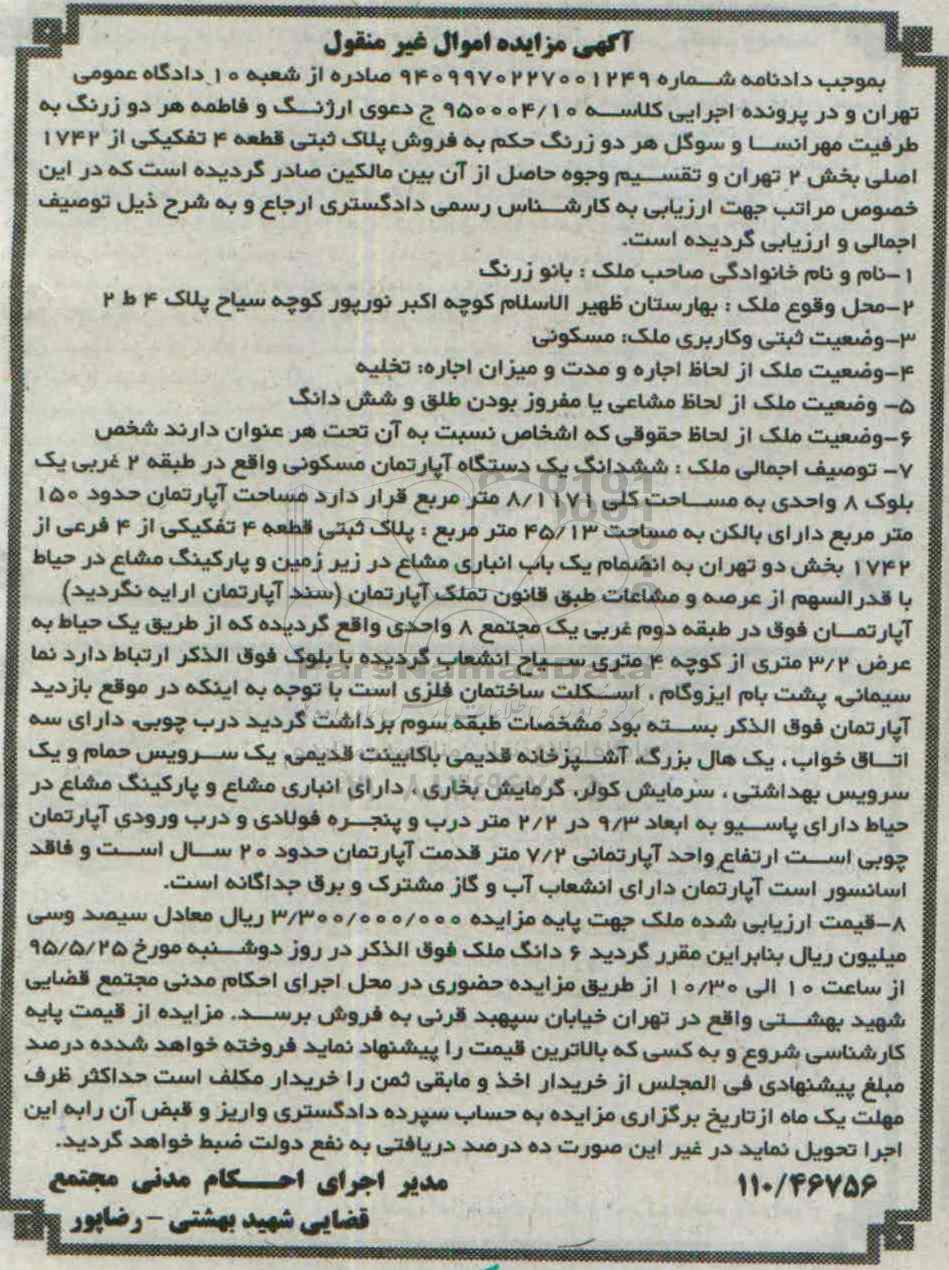 آگهی مزایده اموال غیر منقول
بموجب دادنامه شماره ۹۴۰۹۹۷۰۲۲۷۰۰۱۲۴۹ صادره از شعبه ۱۰ دادگاه عمومی
تهران و در پرونده اجرایی کلاسه ۹۵۰۰۰۴/۱۰ ج دعوی ارژنگ و فاطمه هر دو زرنگ به
طرفیت مهرانسا و سوگل هر دو زرنگ حکم به فروش پلاک ثبتی قطعه ۴ تفکیکی از ۱۷۴۲
اصلی بخش ۲ تهران و تقسیم وجوه حاصل از آن بین مالکین صادر گردیده است که در این
خصوص مراتب جهت ارزیابی به کارشناس رسمی دادگستری ارجاع و به شرح ذیل توصیف
اجمالی و ارزیابی گردیده است.
۱-نام و نام خانوادگی صاحب ملک : بانو زرنگ
۲-محل وقوع ملک : بهارستان ظهیر الاسلام کوچه اکبر نورپور کوچه سیاح پلاک ۴ ط ۲
۳-وضعیت ثبتی وکاربری ملک: مسکونی
۴-وضعیت ملک از لحاظ اجاره و مدت و میزان اجاره: تخلیه
۵- وضعیت ملک از لحاظ مشاعی یا مفروز بودن طلق و شش دانگ
۶-وضعیت ملک از لحاظ حقوقی که اشخاص نسبت به آن تحت هر عنوان دارند شخص
۷- توصیف اجمالی ملک : ششدانگ یک دستگاه آپارتمان مسکونی واقع در طبقه ۲ غربی یک
بلوک ۸ واحدی به مساحت کلی ۸/۱۱۷۱ متر مربع قرار دارد مساحت آپارتمان حدود ۱۵۰
متر مربع دارای بالکن به مساحت ۴۵/۱۳ متر مربع : پلاک ثبتی قطعه ۴ تفکیکی از ۴ فرعی از
۱۷۴۲ بخش دو تهران به انضمام یک باب انباری مشاع در زیر زمین و پارکینگ مشاع در حیاط
با قدرالسهم از عرصه و مشاعات طبق قانون تملک آپارتمان (سند آپارتمان ارایه نگردید)
آپارتمان فوق در طبقه دوم غربی یک مجتمع ۸ واحدی واقع گردیده که از طریق یک حیاط به
عرض ۳/۲ متری از کوچه ۴ متری سیاح انشعاب گردیده با بلوک فوق الذکر ارتباط دارد نما
سیمانی، پشت بام ایزوگام ، اسکلت ساختمان فلزی است با توجه به اینکه در موقع بازدید
آپارتمان فوق الذکر بسته بود مشخصات طبقه سوم برداشت گردید درب چوبی، دارای سه
اتاق خواب ، یک هال بزرگ، آشپزخانه قدیمی باکابینت قدیمی، یک سرویس حمام و یک
سرویس بهداشتی ، سرمایش کولر، گرمایش بخاری ، دارای انباری مشاع و پارکینگ مشاع در
حیاط دارای پاسیو به ابعاد ۹/۳ در ۲/۲ متر درب و پنجره فولادی و درب ورودی آپارتمان
چوبی است ارتفاع واحد آپارتمانی ۷/۲ متر قدمت آپارتمان حدود ۲۰ سال است و فاقد
اسانسور است آپارتمان دارای انشعاب آب و گاز مشترک و برق جداگانه است.
۸-قیمت ارزیابی شده ملک جهت پایه مزایده ۳/۳۰۰/۰۰۰/۰۰۰ ریال معادل سیصد وسی
میلیون ریال بنابراین مقرر گردید ۶ دانگ ملک فوق الذکر در روز دوشنبه مورخ ۹۵/۵/۲۵
از ساعت ۱۰ الی ۱۰/۳۰ از طریق مزایده حضوری در محل اجرای احکام مدنی مجتمع قضایی
شهید بهشتی واقع در تهران خیابان سپهبد قرنی به فروش برسد. مزایده از قیمت پایه
کارشناسی شروع و به کسی که بالاترین قیمت را پیشنهاد نماید فروخته خواهد شدده درصد
مبلغ پیشنهادی فی المجلس از خریدار اخذ و مابقی ثمن را خریدار مکلف است حداکثر ظرف
مهلت یک ماه ازتاریخ برگزاری مزایده به حساب سپرده دادگستری واریز و قبض آن رابه این
اجرا تحویل نماید در غیر این صورت ده درصد دریافتی به نفع دولت ضبط خواهد گردید.
۱۱۰/۴۶۷۵۶
مدیر اجرای احکام مدنی مجتمع
قضایی شهید بهشتی - رضاپور
ParsNamadData